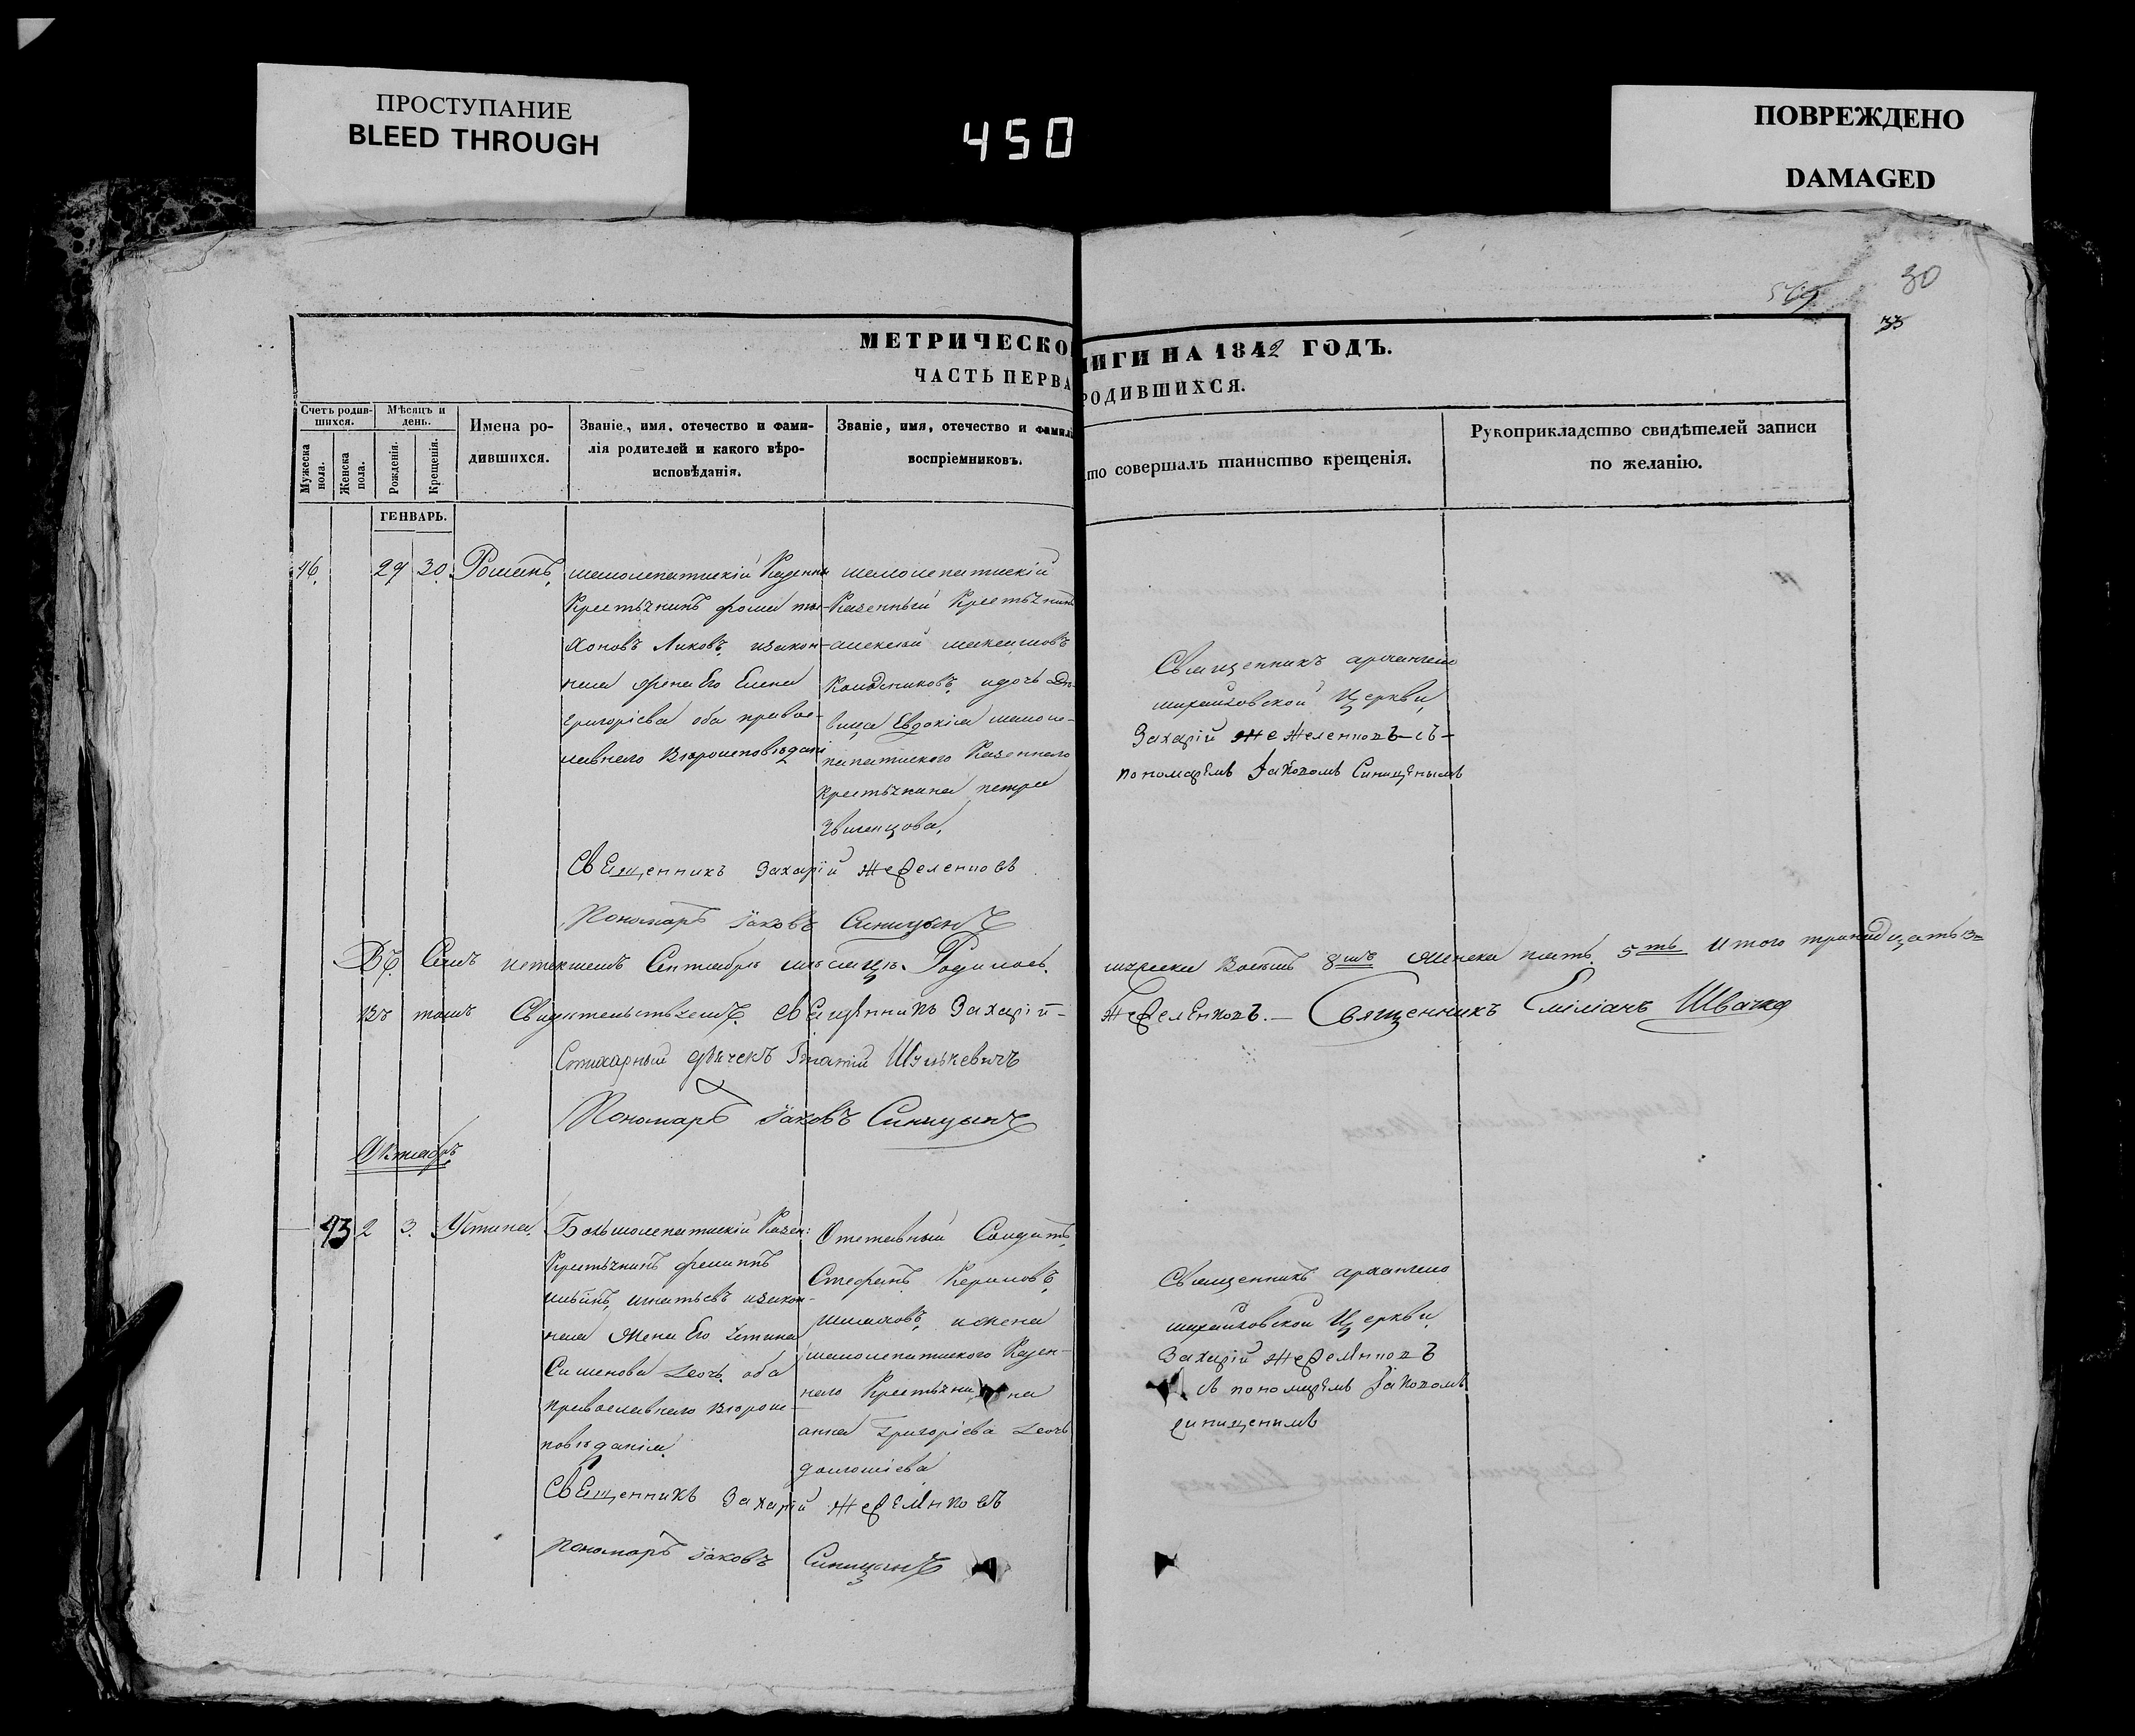 ПРОСТУПАНИЕ
BLEED THROUGH
450
ПОВРЕЖДЕНО
DAMAGED
30
569
33
МЕТРИЧЕСКО
НИГИ НА 1842 ГОДЪ.
ЧАСТЬ ПЕРВА
РОДИВШИХСЯ.
Счетъ родив-
шихся.
Мужеска
пола.
Женска
пола.
Мѣсяцъ и
день.
Рожденія.
Крещенія.
Имена ро-
дившихся.
Званіе, имя, отечество и фами-
лія родителей и какого вѣро-
исповѣданія.
Званіе, имя, отечество и фамилі
воспріемниковъ.
то совершалъ таинство крещенія.
Рукоприкладство свидѣтелей записи
по желанію.
ГЕНВАРЬ.
46. 29 30 Романъ,
малолепатискій Казенны
Крестьянинъ фома ти-
хоновъ Лиховъ, изакон-
ная жена Его Елена
григоріева оба правос-
лавнаго Вероисповѣдані
малолепатискій
Казенный Крестьянинъ
алексѣй максимовъ
идочь Дѣ-
вица Евдокія мало-
лепатиского Казеннаго
крестьянина петра
Звягенцова,
Священникъ архангело
михайловской Церкви,
Захарій Жеделенковъ съ-
пономаремъ Іаковомъ Синицынымъ
СвЕщенникъ Захарій Жеделенковъ
Пономарь Іаковъ Синицынъ
Въ Семъ истекшемъ Сентябре месяце. Родилось.
мужеска Восемь 8мъ Женска пять. 5ть Итого тринадцать 13=
Въ томъ Свидетельствуемъ СвЕщенникъ Захарій-
Жеделенковъ.— Священникъ Емиліанъ Швачка
Стихарный дьячекъ Игнатій Шулькевичъ
Пономарь Іаковъ Синицынъ
Октябрь
43 2 3. Устина.
Большолепатискій Казен:
Крестьянинъ филиппъ
ильинъ, игнатьевъ изакон-
ная Жена Его устина
Симонова дочь. оба
православнаго Вероис-
поведанія.
Отставный Солдатъ,
Стефанъ Кириловъ,
ижена
малолепатиского Казен-
наго Крестьянина
анна Григоріева дочь
Священникъ архангело
михайловской Церкви,
Захарій Жеделенковъ
съ пономаремъ Іаковомъ
Синицынымъ
СвЕщенникъ Захарій Жеделенковъ
Пономарь Іаковъ Синицынъ